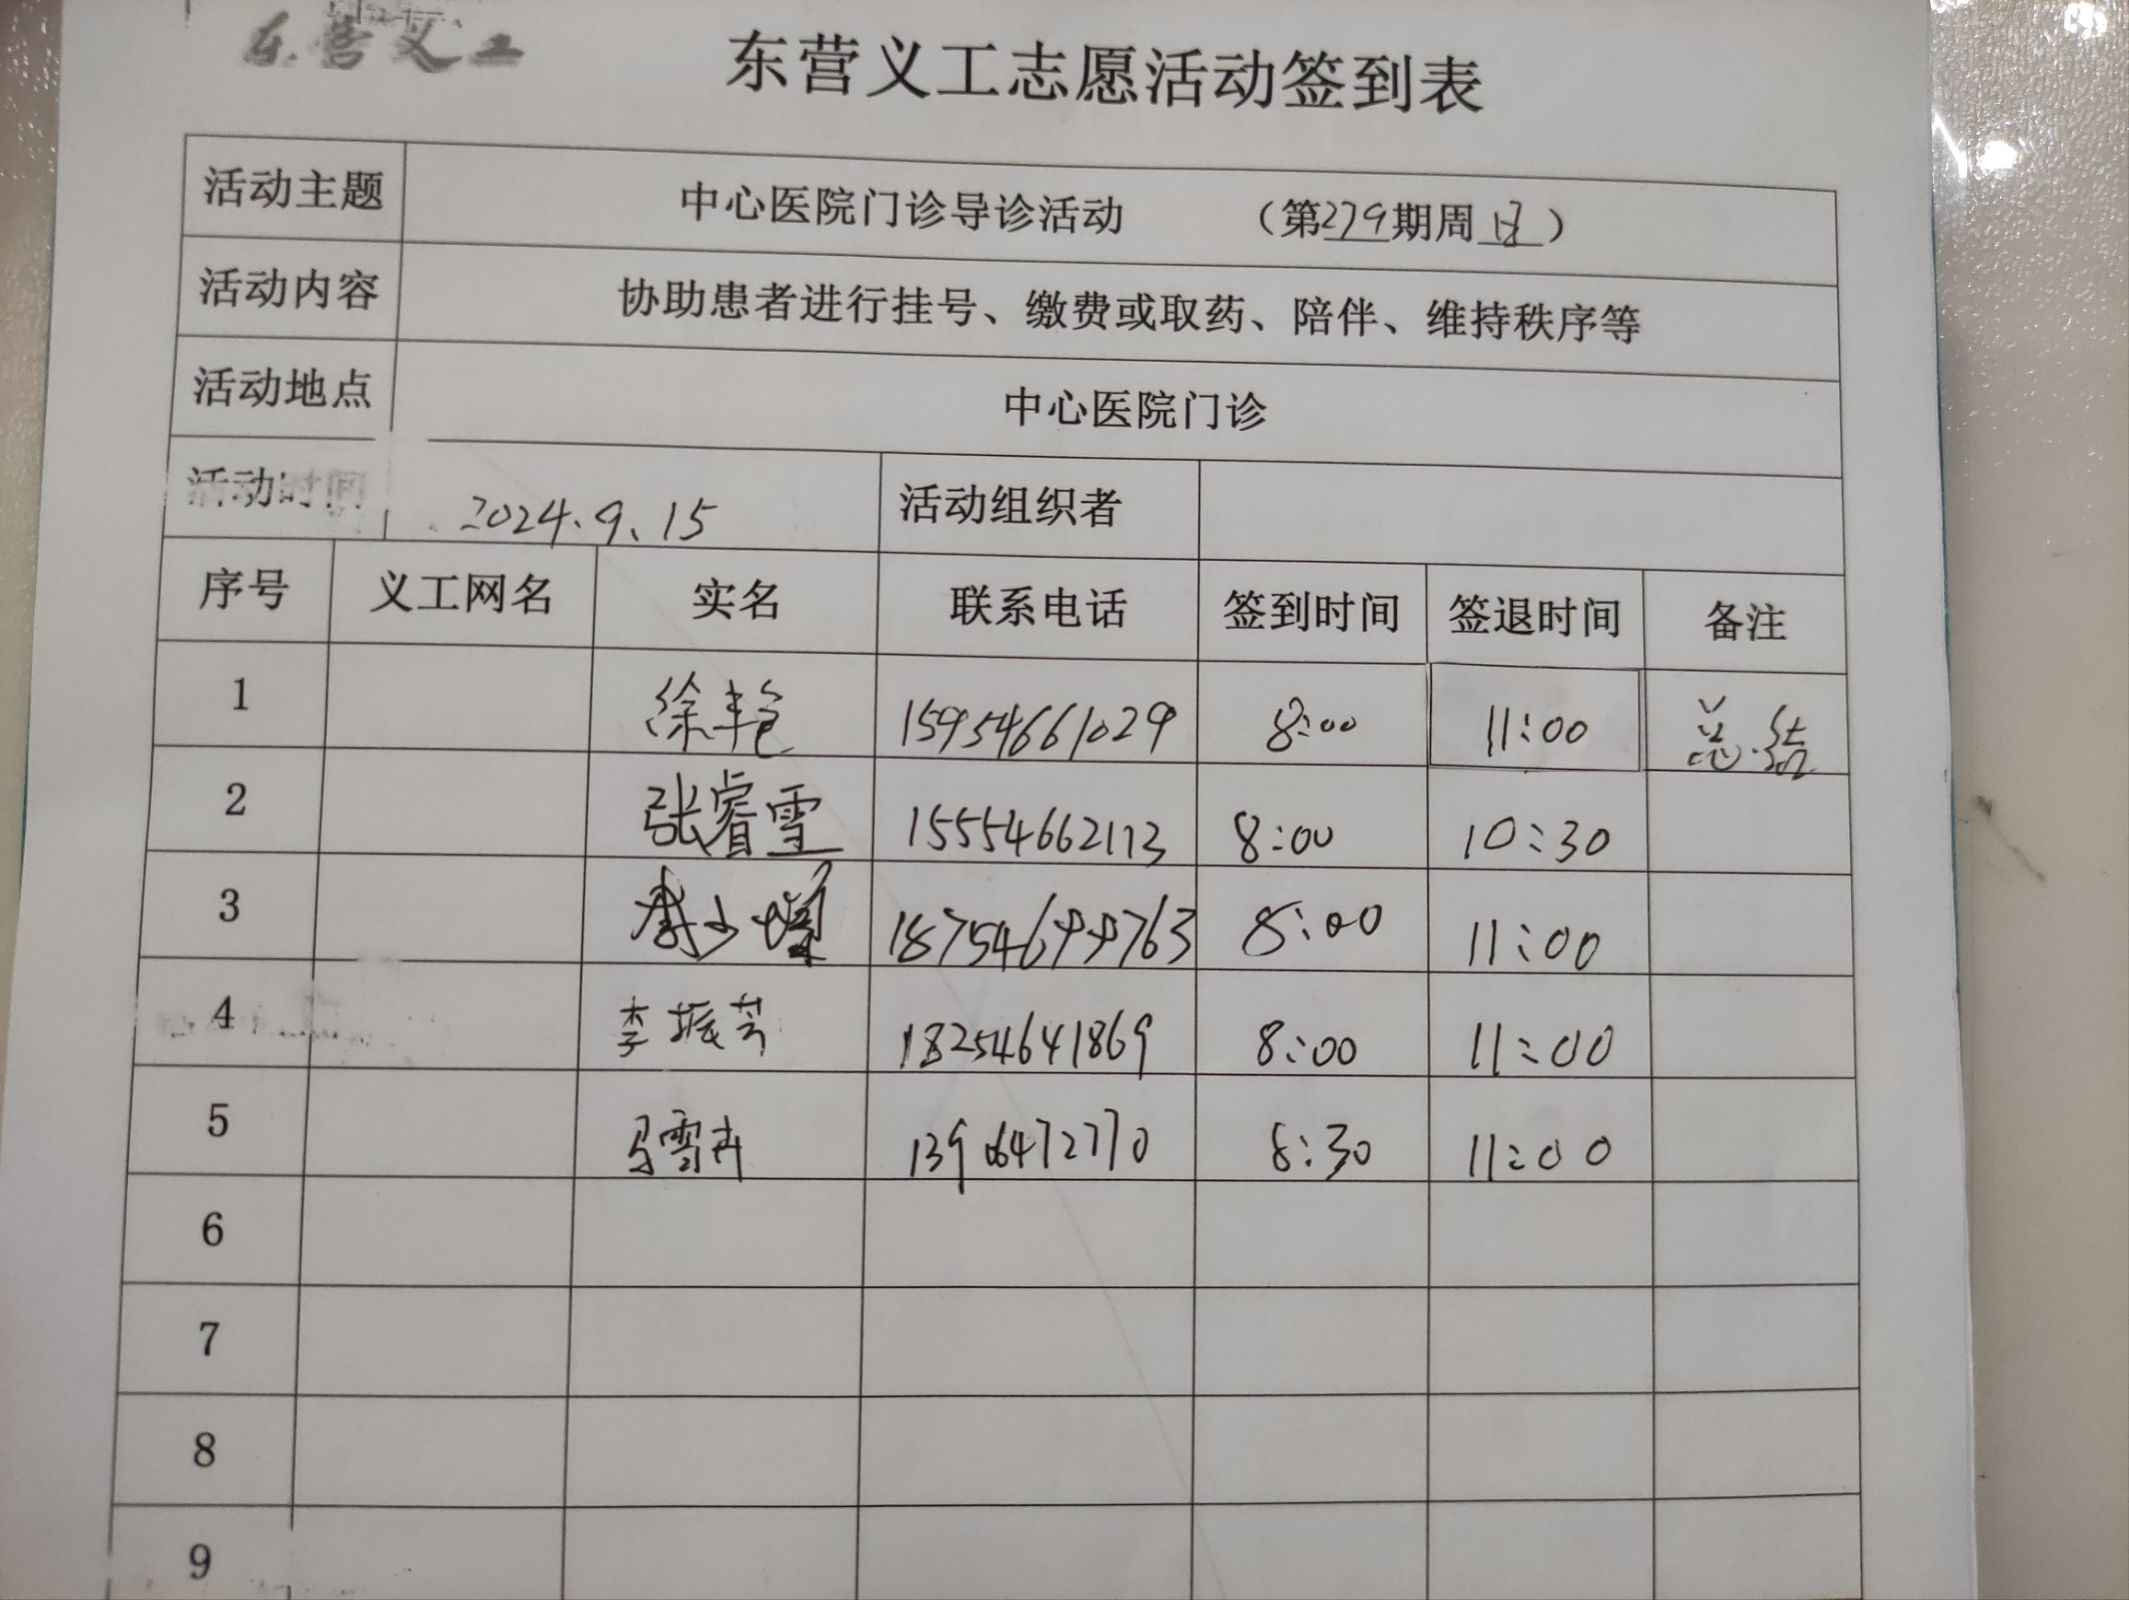 东营义工
东营义工志愿活动签到表
活动主题 中心医院门诊导诊活动 （第279期周日）
活动内容 协助患者进行挂号、缴费或取药、陪伴、维持秩序等
活动地点 中心医院门诊
活动时间 2024.9.15 活动组织者
序号 义工网名 实名 联系电话 签到时间 签退时间 备注
1 徐丰艳 15954661029 8:00 11:00 总结
2 张睿雪 15554662113 8:00 10:30
3 8:00 11:00
4 李振芳 18254641869 8:00 11:00
5 马雪卉 13906472770 8:30 11:00
6
7
8
9